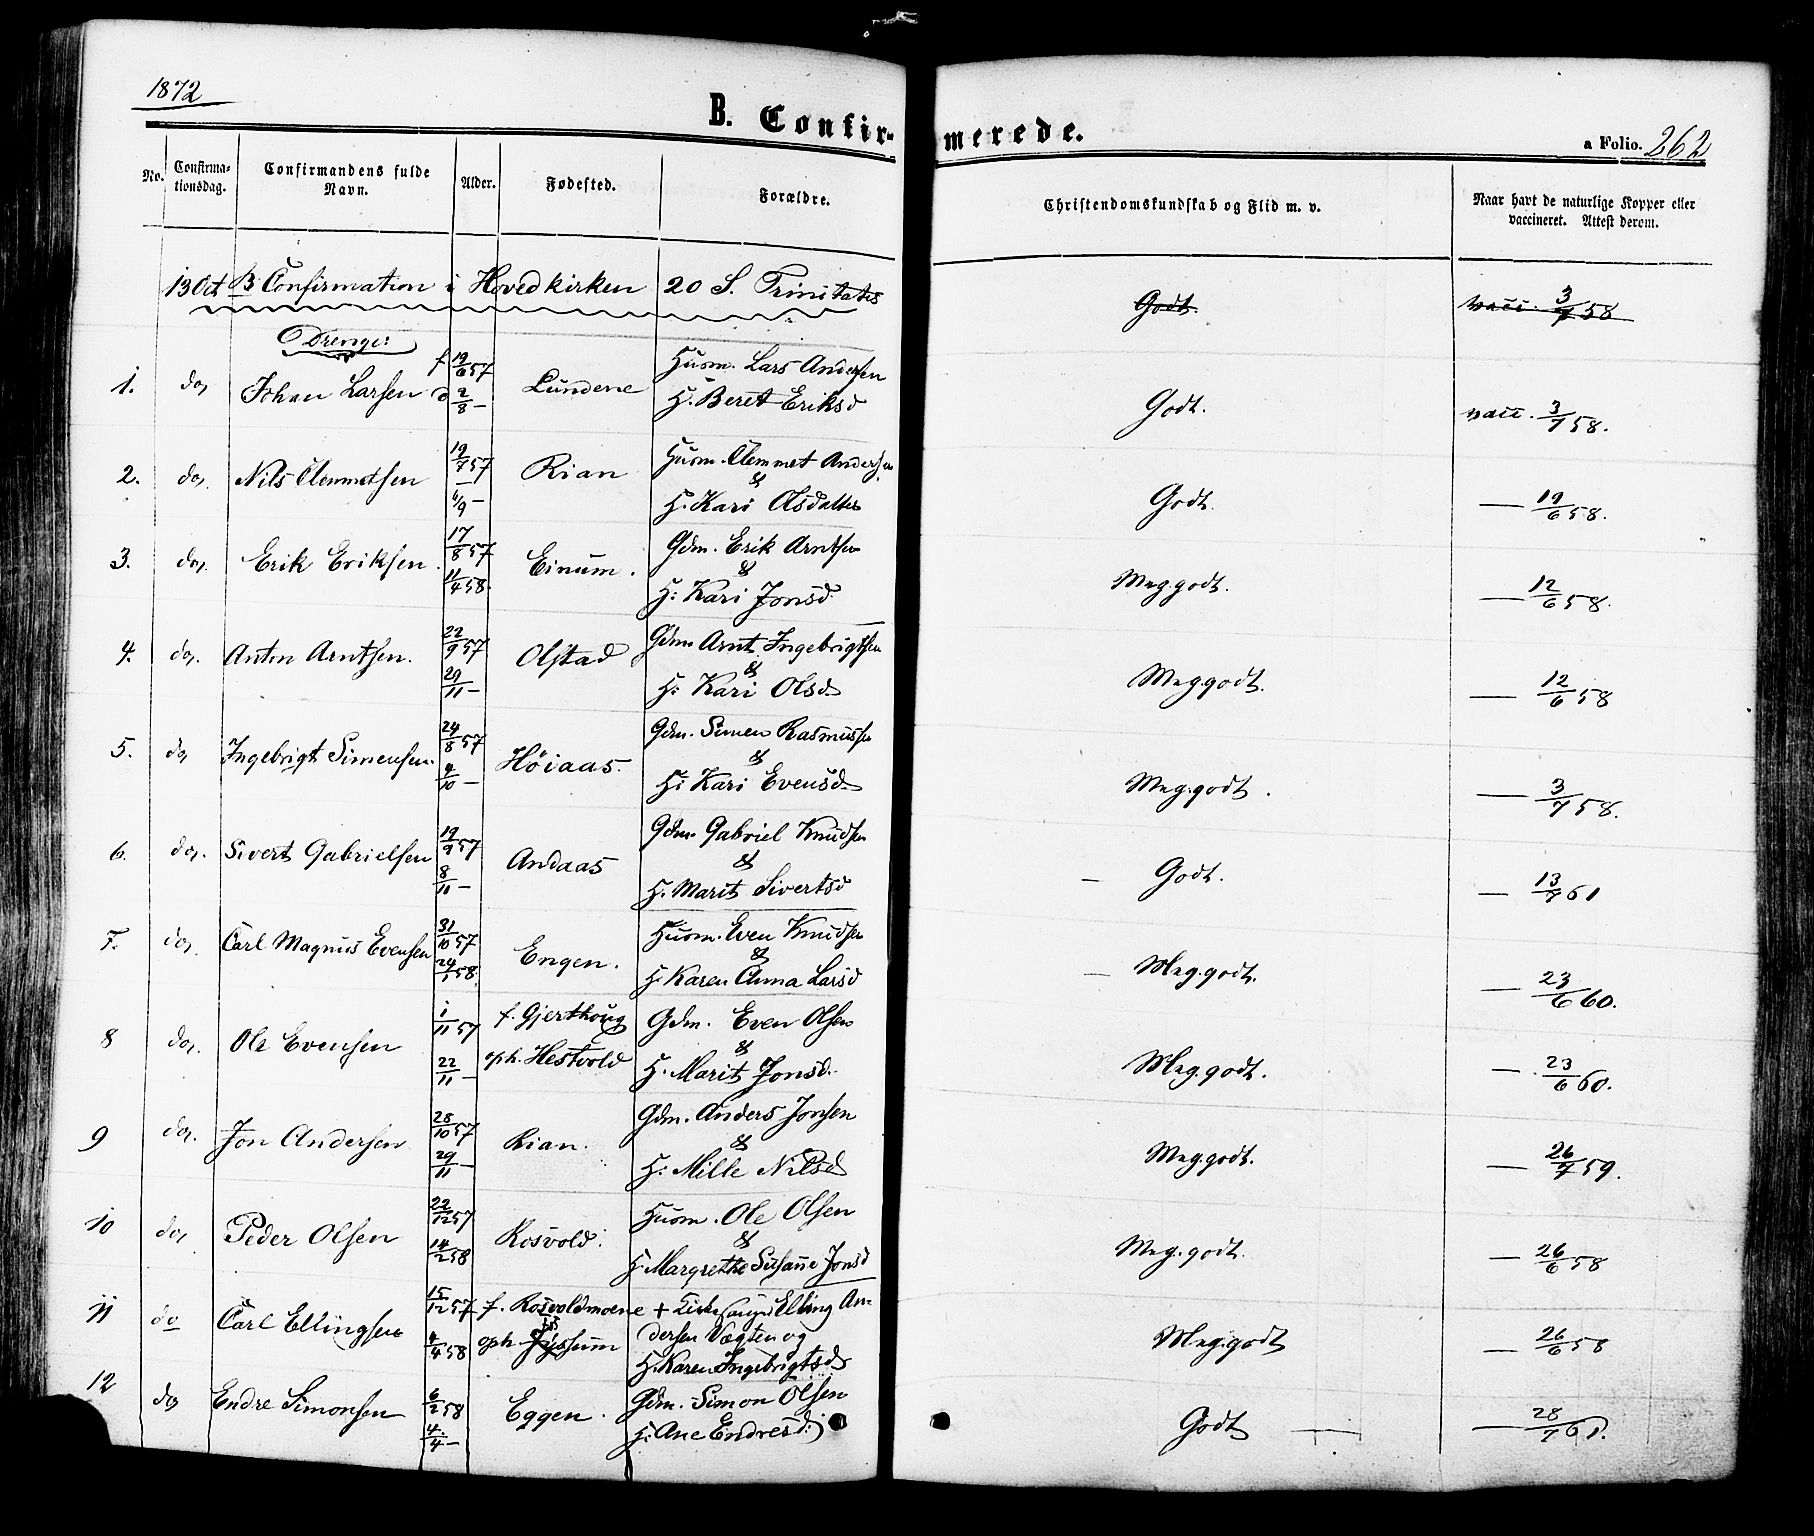 1872
B. Confirmerede.
a Folio. 262
No. Confirmationsdag. Confirmandens fulde Navn. Alder. Fødested. Forældre. Christendomskundskab og Flid m. v. Naar havt de naturlige Kopper eller vaccineret. Attest derom.
13 Oct B. Confirmation i Hovedkirken 20 S. Trinitatis Godt. vacc. 3/7 58
Drenge:
1. do, Johan Larsen f 19/6 57 d 2/8 — Lundene Husm. Lars Andersen H. Beret Eriksd Godt. vacc. 3/7 58.
2. do, Nils Clemmetsen 19/7 57 6/9 — Rian Husm. Clemmet Andersen & H. Kari Olsdatter Godt. — 19/6 58.
3. do, Erik Eriksen. 17/8 57 11/4 58. Einum. Gdm. Erik Arntsen & H: Kari Jonsd. Meg.godt. — 12/6 58.
4. do, Anton Arntsen. 22/9 57 29/11 — Olstad Gdm Arnt Ingebrigtsen & H: Kari Olsd. Meg.godt. — 12/6 58
5. do, Ingebrigt Simensen. 24/8 57 4/10 — Høiaas. Gdm. Simen Rasmussen & H: Kari Evensd. Meg.godt. — 3/7 58.
6. do, Sivert Gabrielsen 19/9 57 8/11 — Andaas Gdm. Gabriel Knudsen & H. Marit Sivertsd — Godt. — 13/7 61
7. do, Carl Magnus Evensen 31/10 57 24/1 58. Engen. Husm. Even Knudsen & H. Karen Anna Larsd — Meg.godt. — 23/6 60.
8 do, Ole Evensen 1/11 57 22/11 — f. Gjerthoug oph. Hestvold Gdm. Even Olsen & H. Marit Jonsd. Meg.godt. — 23/6 60.
9 do, Jon Andersen 28/10 57 29/11 — Rian. Gdm. Anders Jonsen & H: Mille Nilsd Meg.godt. — 26/7 59.
10 do, Peder Olsen 22/12 57 14/2 58 Rosvold. Husm. Ole Olsen & H. Margrethe Susanne Jonsd Meg.godt. — 26/6 58
11 do Carl Ellingsen 15/12 57 4/4 58 f. Rosvoldmoene oph. + Elling Andersen Vægten og H. Karen Ingebrigtsd Meg.godt — 26/6 58
12 do Endre Simonsen 6/2 58 4/4 — Eggen. Gdm. Simon Olsen H: Ane Endresd. Godt — 28/7 61.